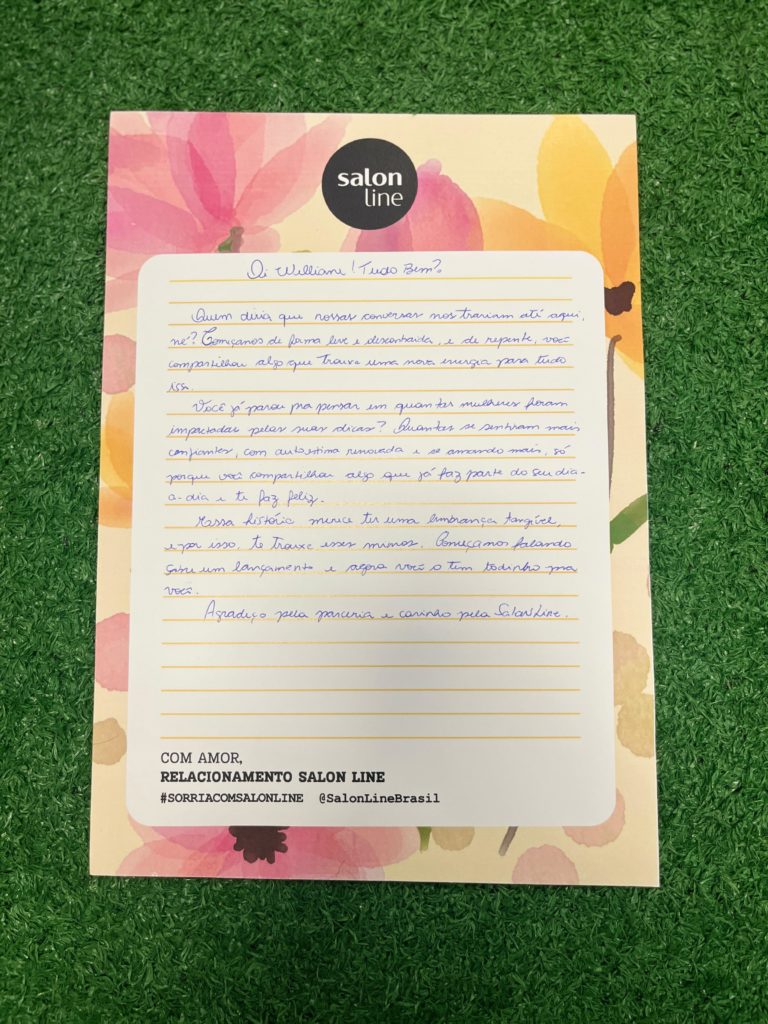 salon
line
Oi Williane! Tudo Bem?
Quem diria que nossas conversas nos trariam até aqui,
né? Começamos de forma leve e descontraída, e de repente, você
compartilhou algo que trouxe uma nova energia para tudo
isso.
Você já parou pra pensar em quantas mulheres foram
impactadas pelas suas dicas? Quantas se sentiram mais
confiantes, com autoestima renovada e se amando mais, só
porque você compartilhou algo que já faz parte do seu dia-
a-dia e te faz feliz.
Nossa história merece ter uma lembrança tangível,
e por isso, te trouxe esses mimos. Começamos falando
sobre um lançamento e agora você o tem todinho pra
você.
Agradeço pela parceria e carinho pela Salon Line.
COM AMOR,
RELACIONAMENTO SALON LINE
#SORRIACOMSALONLINE @SalonLineBrasil